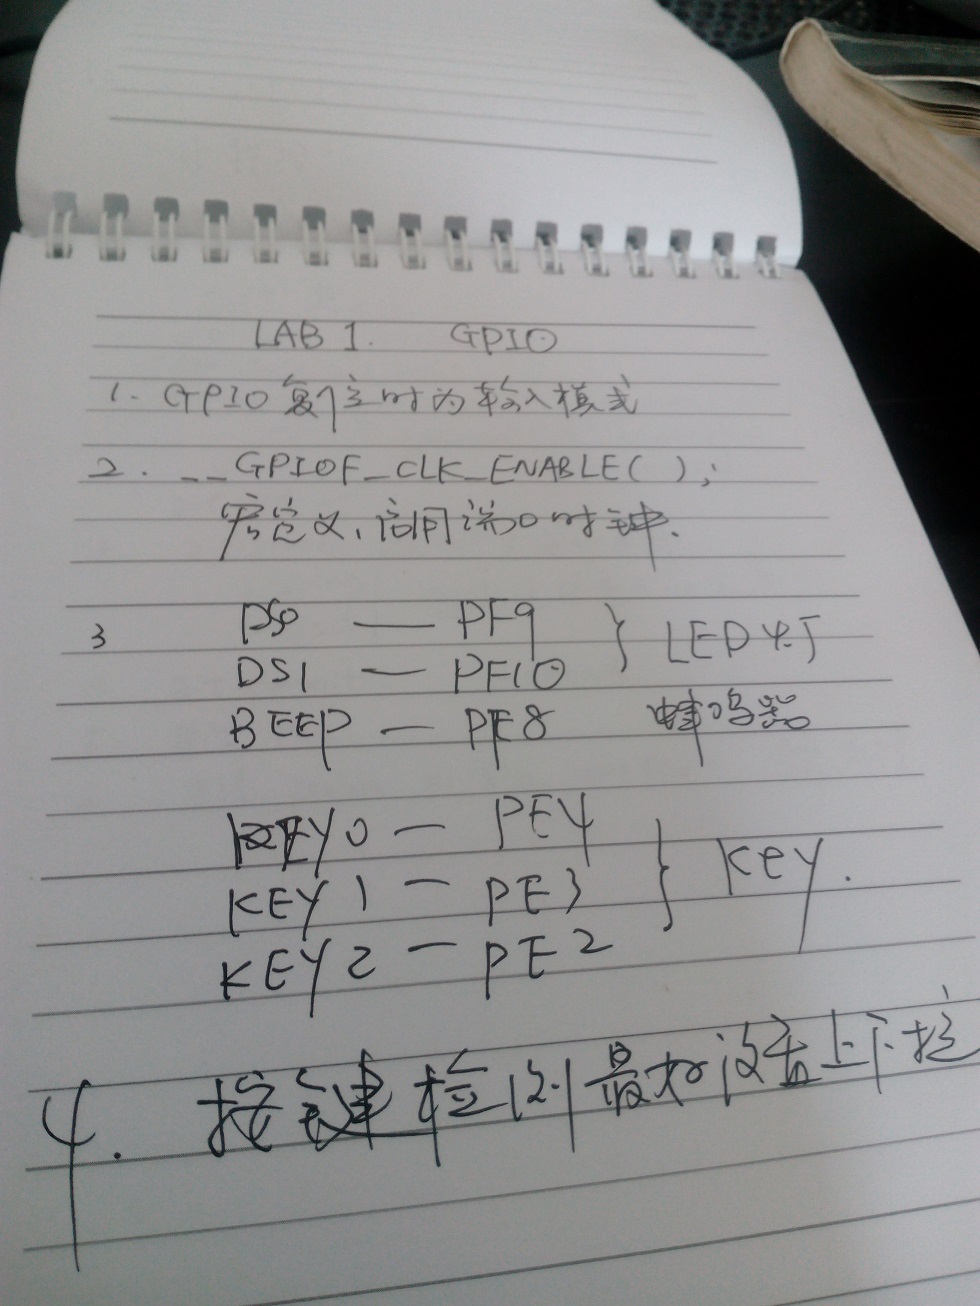 LAB 1. GPIO
1. GPIO复位时为输入模式
2. __GPIOF_CLK_ENABLE();
宏定义,启用端口时钟.
3 DS0 — PF9
DS1 — PF10 } LED灯
BEEP — PF8 蜂鸣器
KEY0 — PE4
KEY1 — PE3 } KEY.
KEY2 — PE2
4. 按键检测最好设置上下拉